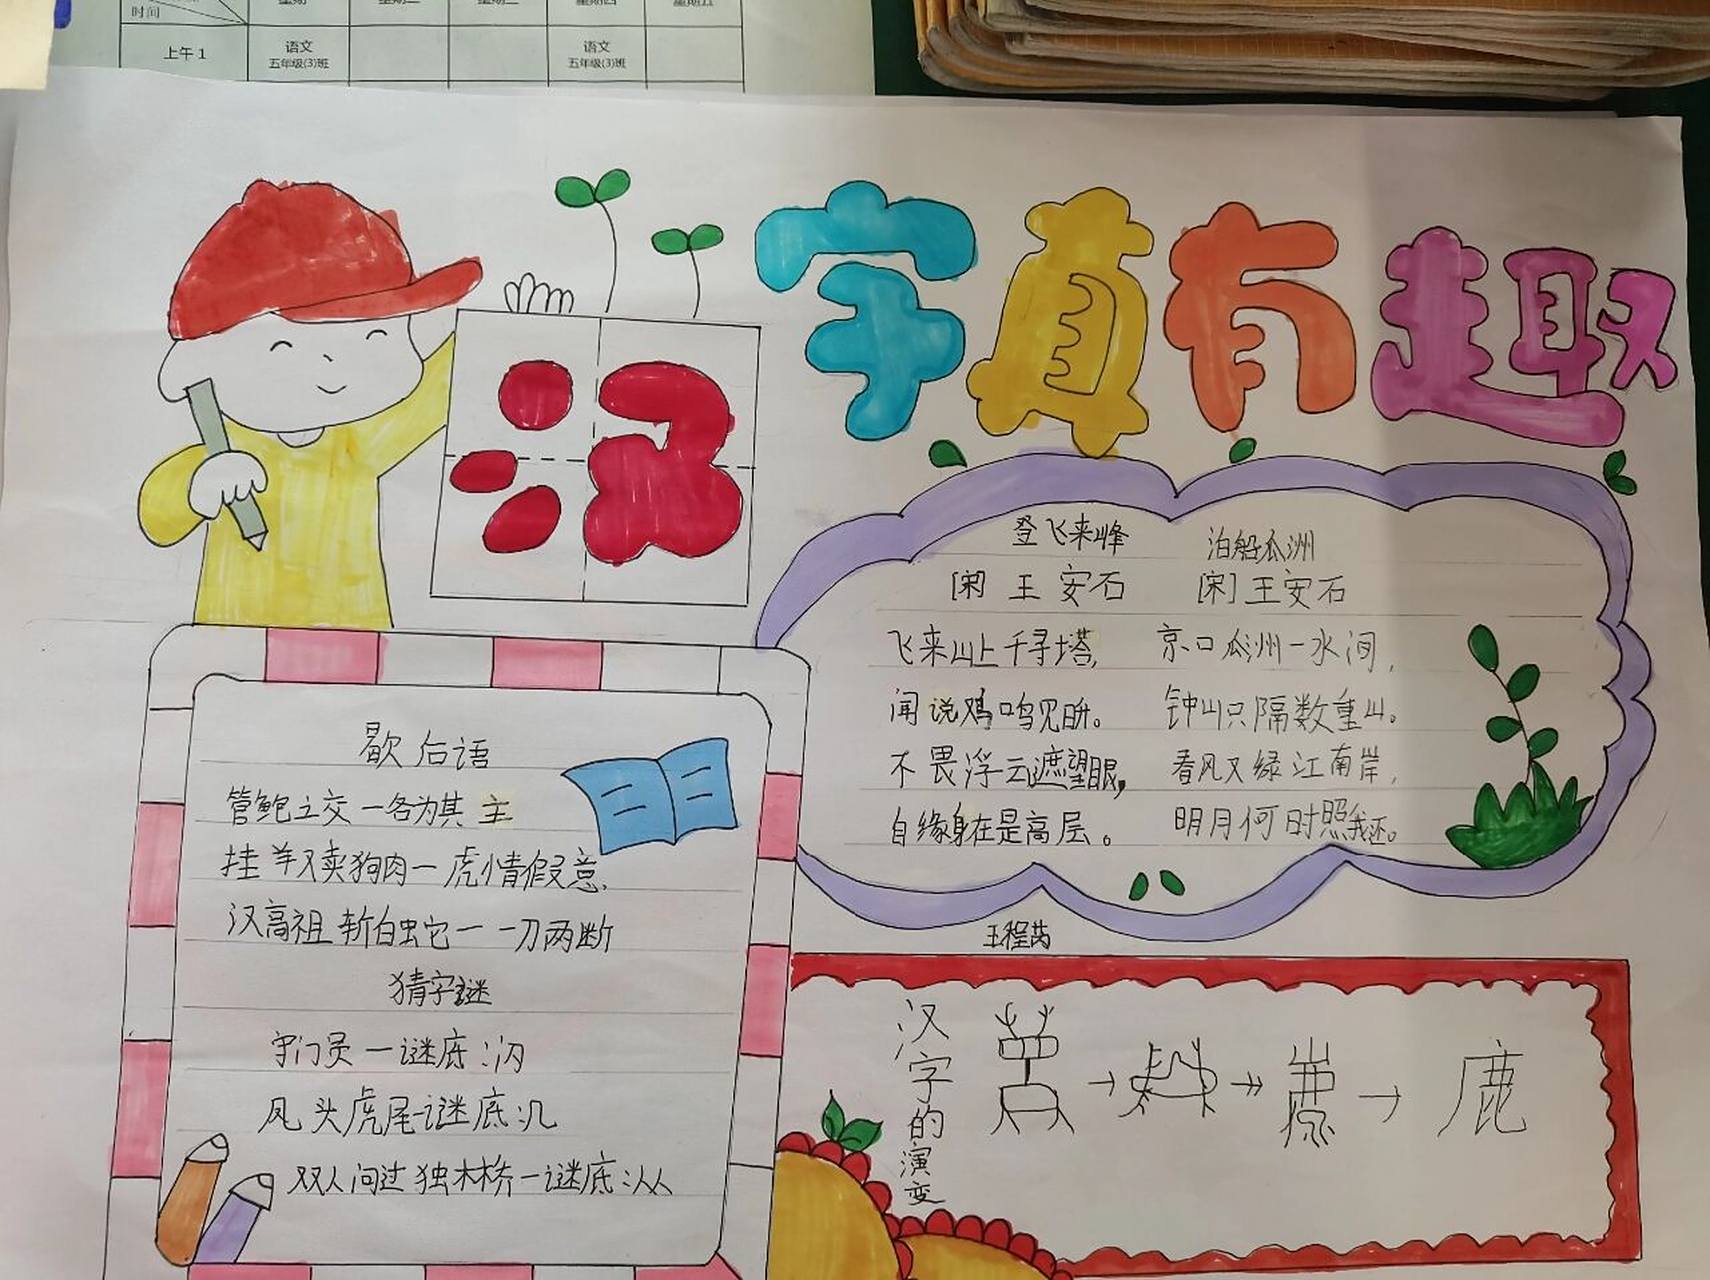 时间
上午1
语文
五年级(3)班
语文
五年级(3)班
汉
字真有趣
登飞来峰
[宋] 王安石
飞来山上千寻塔,
闻说鸡鸣见日升。
不畏浮云遮望眼,
自缘身在最高层。
泊船瓜洲
[宋]王安石
京口瓜洲一水间,
钟山只隔数重山。
春风又绿江南岸,
明月何时照我还。
歇后语
管鲍之交一各为其主
挂羊头卖狗肉一虚情假意.
汉高祖斩白蛇一一刀两断
猜字谜
守门员一谜底:闪
凤头虎尾一谜底:几
双人问过独木桥一谜底:从
汉字的演变
→ → → 鹿